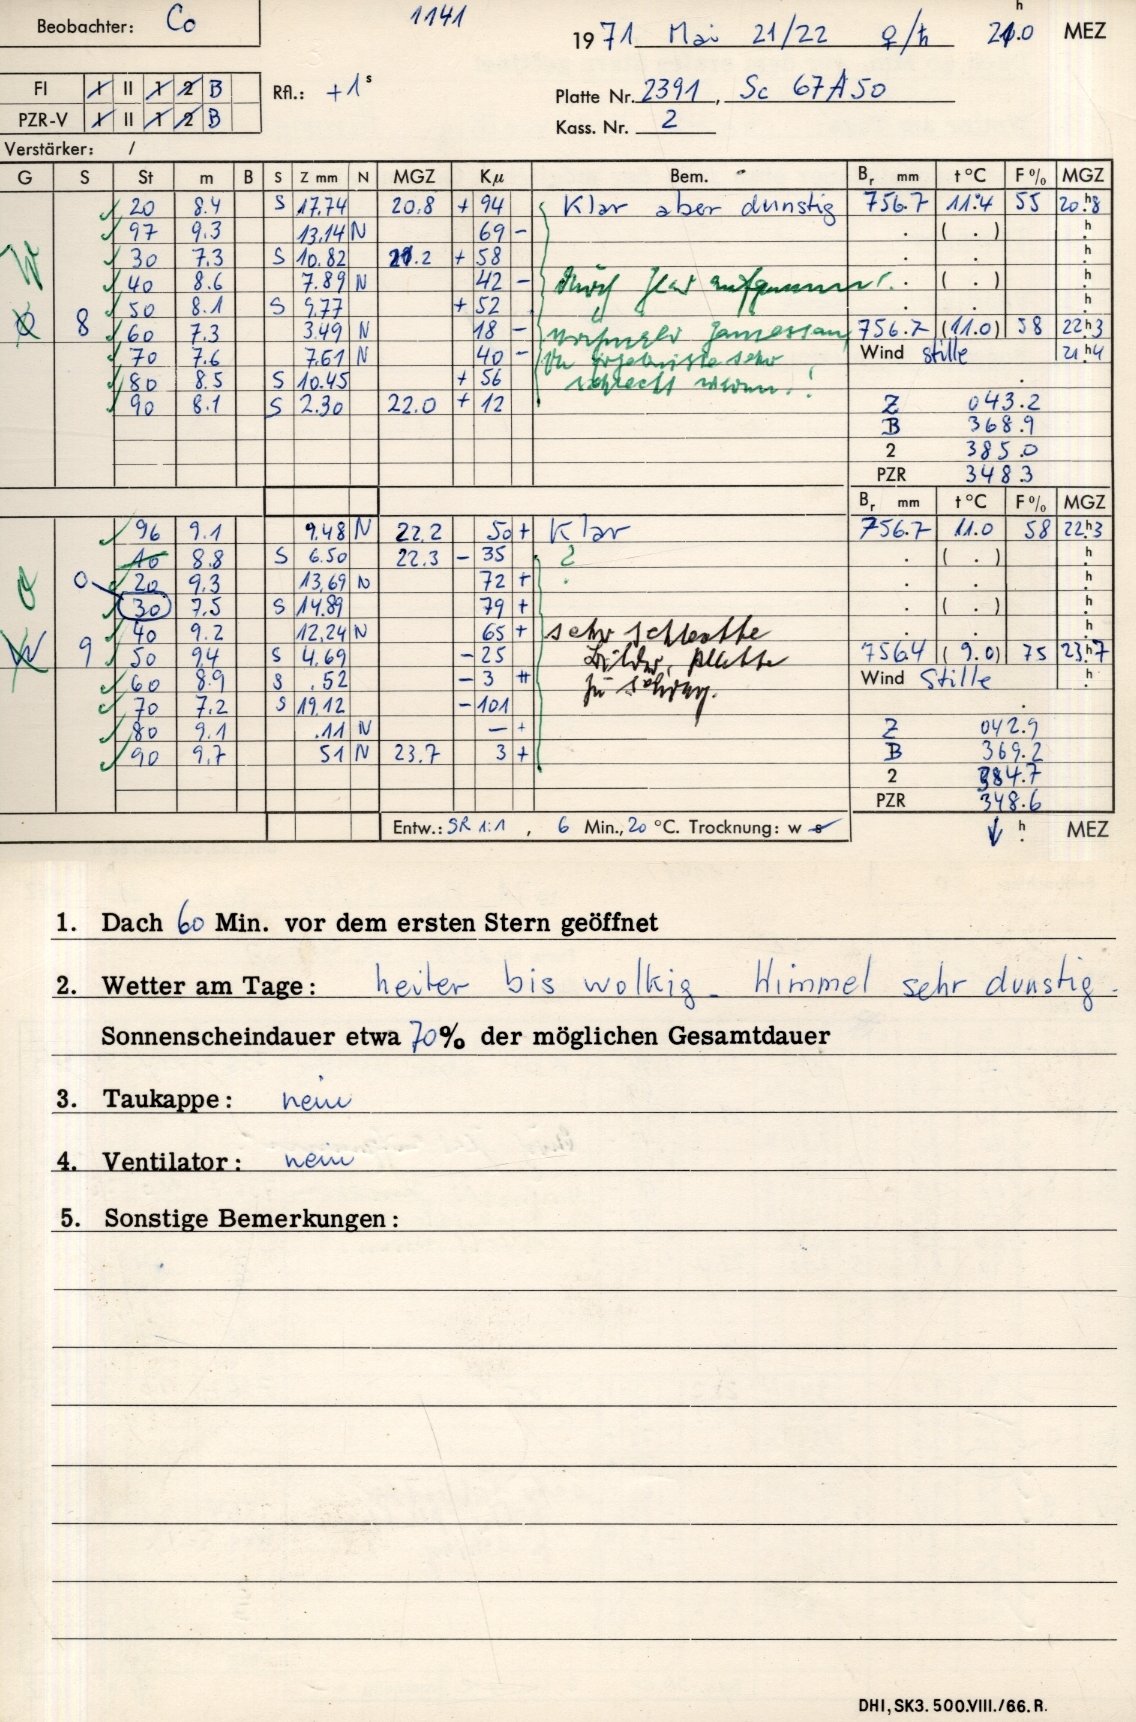 Beobachter: Co
1141
1971 Mai 21/22 ♀/♄ 21.0 h MEZ
FI I II 1 2 B
Rfl.: +1 s
Platte Nr. 2391, Sc 67A50
PZR-V I II 1 2 B
Kass. Nr. 2
Verstärker: /
G S St m B S Z mm N MGZ Kμ Bem. Br mm t °C F % MGZ
20 8.4 S 17.74 20.8 + 94 Klar aber dunstig 756.7 11.4 55 20h8
97 9.3 13.14 N 69 - ( . ) h
30 7.3 S 10.82 21.2 + 58 h
40 8.6 7.89 N 42 - ( . ) h
50 8.1 S 9.77 + 52 h
8 60 7.3 3.49 N 18 - 756.7 (11.0) 58 22h3
70 7.6 7.61 N 40 - Wind stille 21h4
80 8.5 S 10.45 + 56
90 8.1 S 2.30 22.0 + 12 Z 043.2
B 368.9
2 385.0
PZR 348.3
Br mm t °C F % MGZ
96 9.1 9.48 N 22.2 50 + Klar 756.7 11.0 58 22h3
10 8.8 S 6.50 22.3 - 35 ? ( . ) h
0 20 9.3 13.69 N 72 + h
30 7.5 S 14.89 79 + ( . ) h
40 9.2 12.24 N 65 + sehr schlechte h
9 50 9.4 S 4.69 - 25 Bilder, Platte 756.4 (9.0) 75 23h7
60 8.9 S .52 - 3 + zu Wind Stille h
70 7.2 S 19.12 - 101
80 9.1 .11 N - + Z 042.9
90 9.7 51 N 23.7 3 + B 369.2
2 384.7
PZR 348.6
Entw.: SR 1:1, 6 Min., 20 °C. Trocknung: w s
↓ h MEZ
1. Dach 60 Min. vor dem ersten Stern geöffnet
2. Wetter am Tage: heiter bis wolkig. Himmel sehr dunstig.
Sonnenscheindauer etwa 70% der möglichen Gesamtdauer
3. Taukappe: nein
4. Ventilator: nein
5. Sonstige Bemerkungen:
DHI, SK3. 500.VIII./66. R.